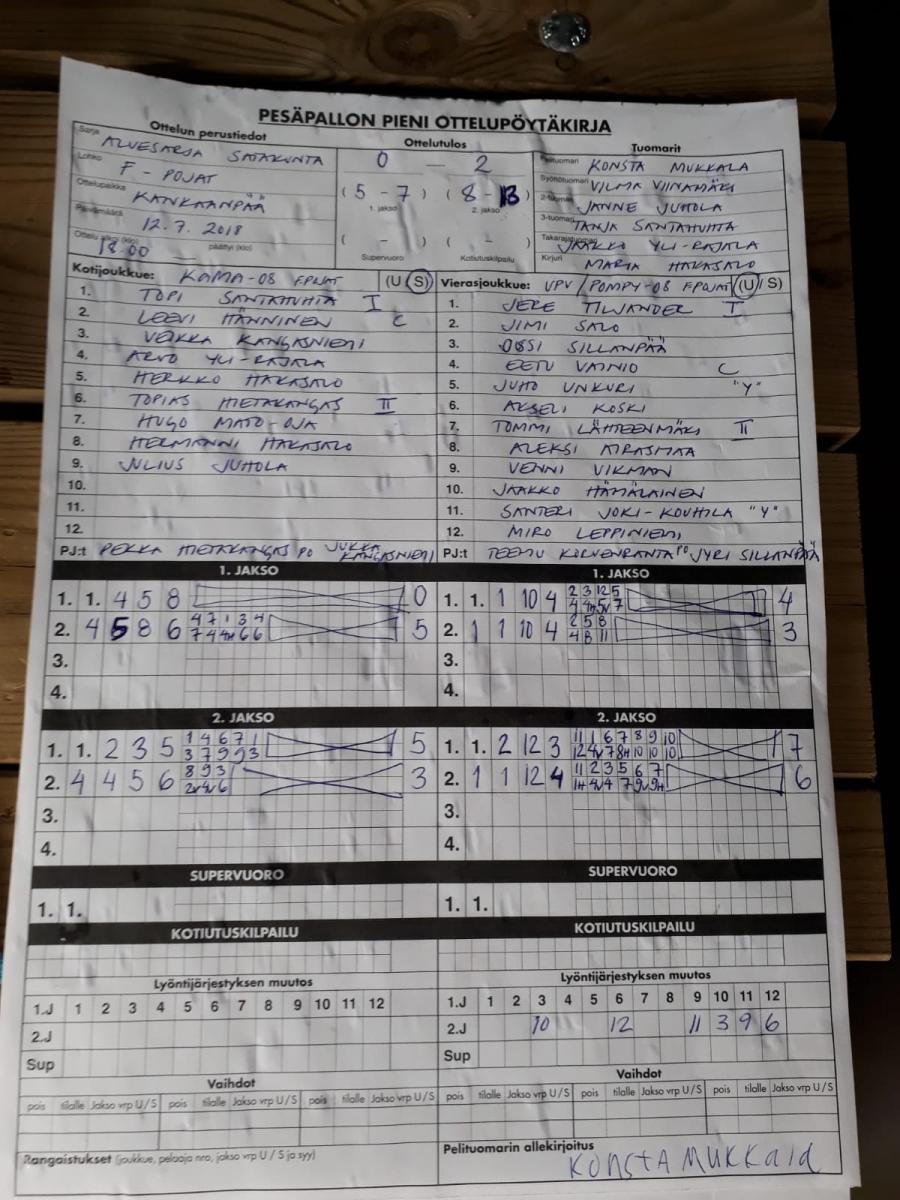 PESÄPALLON PIENI OTTELUPÖYTÄKIRJA
Ottelun perustiedot
Sarja ALUESARJA SATAKUNTA
Lohko F - POJAT
Ottelupaikka KANKAANPÄÄ
Päivämäärä 12.7.2018
18.00 päättyi (klo)
Ottelutulos
0 — 2
(5 - 7) (8 - 13)
1. jakso 2. jakso
( - ) ( - )
Supervuoro Kotiutuskilpailu
Tuomarit
Pelituomari KONSTA MUKKALA
Syöttötuomari VILMA VIINAMÄKI
2-tuomari JANNE JUHOLA
3-tuomari TANJA SANTAHUHTA
Takarajatuomari JAAKKO YLI-RAJALA
Kirjuri MARIA HAKASALO
Kotijoukkue: KAMA-08 FPOJAT (U S)
1. TOPI SANTAHUHTA I
2. LEEVI HÄNNINEN C
3. VEIKKA KANGASNIEMI
4. ARVO YLI-RAJALA
5. HERKKO HAKASALO
6. TOPIAS HIETAKANGAS II
7. HUGO MATO-OJA
8. HERMANNI HAKASALO
9. JULIUS JUHOLA
10.
11.
12.
PJ:t PEKKA HIETAKANGAS PO JUKKA KANGASNIEMI
Vierasjoukkue: UPV / POMPY-08 FPOJAT (U / S)
1. JERE TILJANDER I
2. JIMI SALO
3. OSSI SILLANPÄÄ
4. EETU VAINIO C
5. JUHO UNKURI "Y"
6. AKSELI KOSKI
7. TOMMI LÄHTEENMÄKI II
8. ALEKSI AIRASMAA
9. VENNI VIKMAN
10. JAAKKO HÄMÄLÄINEN
11. SANTERI JOKI-KOUHILA "Y"
12. MIRO LEPPINIEMI
PJ:t TEEMU KORVENRANTA PO JYRI SILLANPÄÄ
1. JAKSO
1. 1. 4 5 8 0
2. 4 5 8 6 4 7 1 3 4 5
7 4 4H 6 6
3.
4.
1. JAKSO
1. 1. 1 10 4 2 3 12 5 4
4 4H 5V 7
2. 1 1 10 4 2 5 8 3
4 8 11
3.
4.
2. JAKSO
1. 1. 2 3 5 1 4 6 7 1 5
3 7 9 9 3
2. 4 4 5 6 8 9 3 3
2V 4V 6
3.
4.
2. JAKSO
1. 1. 2 12 3 11 1 6 7 8 9 10 7
12 4V 7 8H 10 10 10
2. 1 1 12 4 11 2 3 5 6 7 6
1H 4V 4 7 9V 9H
3.
4.
SUPERVUORO
1. 1.
SUPERVUORO
1. 1.
KOTIUTUSKILPAILU
KOTIUTUSKILPAILU
Lyöntijärjestyksen muutos
1.J 1 2 3 4 5 6 7 8 9 10 11 12
2.J
Sup
Lyöntijärjestyksen muutos
1.J 1 2 3 4 5 6 7 8 9 10 11 12
2.J 10 12 11 3 9 6
Sup
Vaihdot
pois tilalle Jakso vrp U / S pois tilalle Jakso vrp U / S pois tilalle Jakso vrp U / S
Vaihdot
pois tilalle Jakso vrp U / S pois tilalle Jakso vrp U / S pois tilalle Jakso vrp U / S
Rangaistukset (joukkue, pelaaja nro, jakso vrp U / S ja syy)
Pelituomarin allekirjoitus
KONSTA MUKKALA